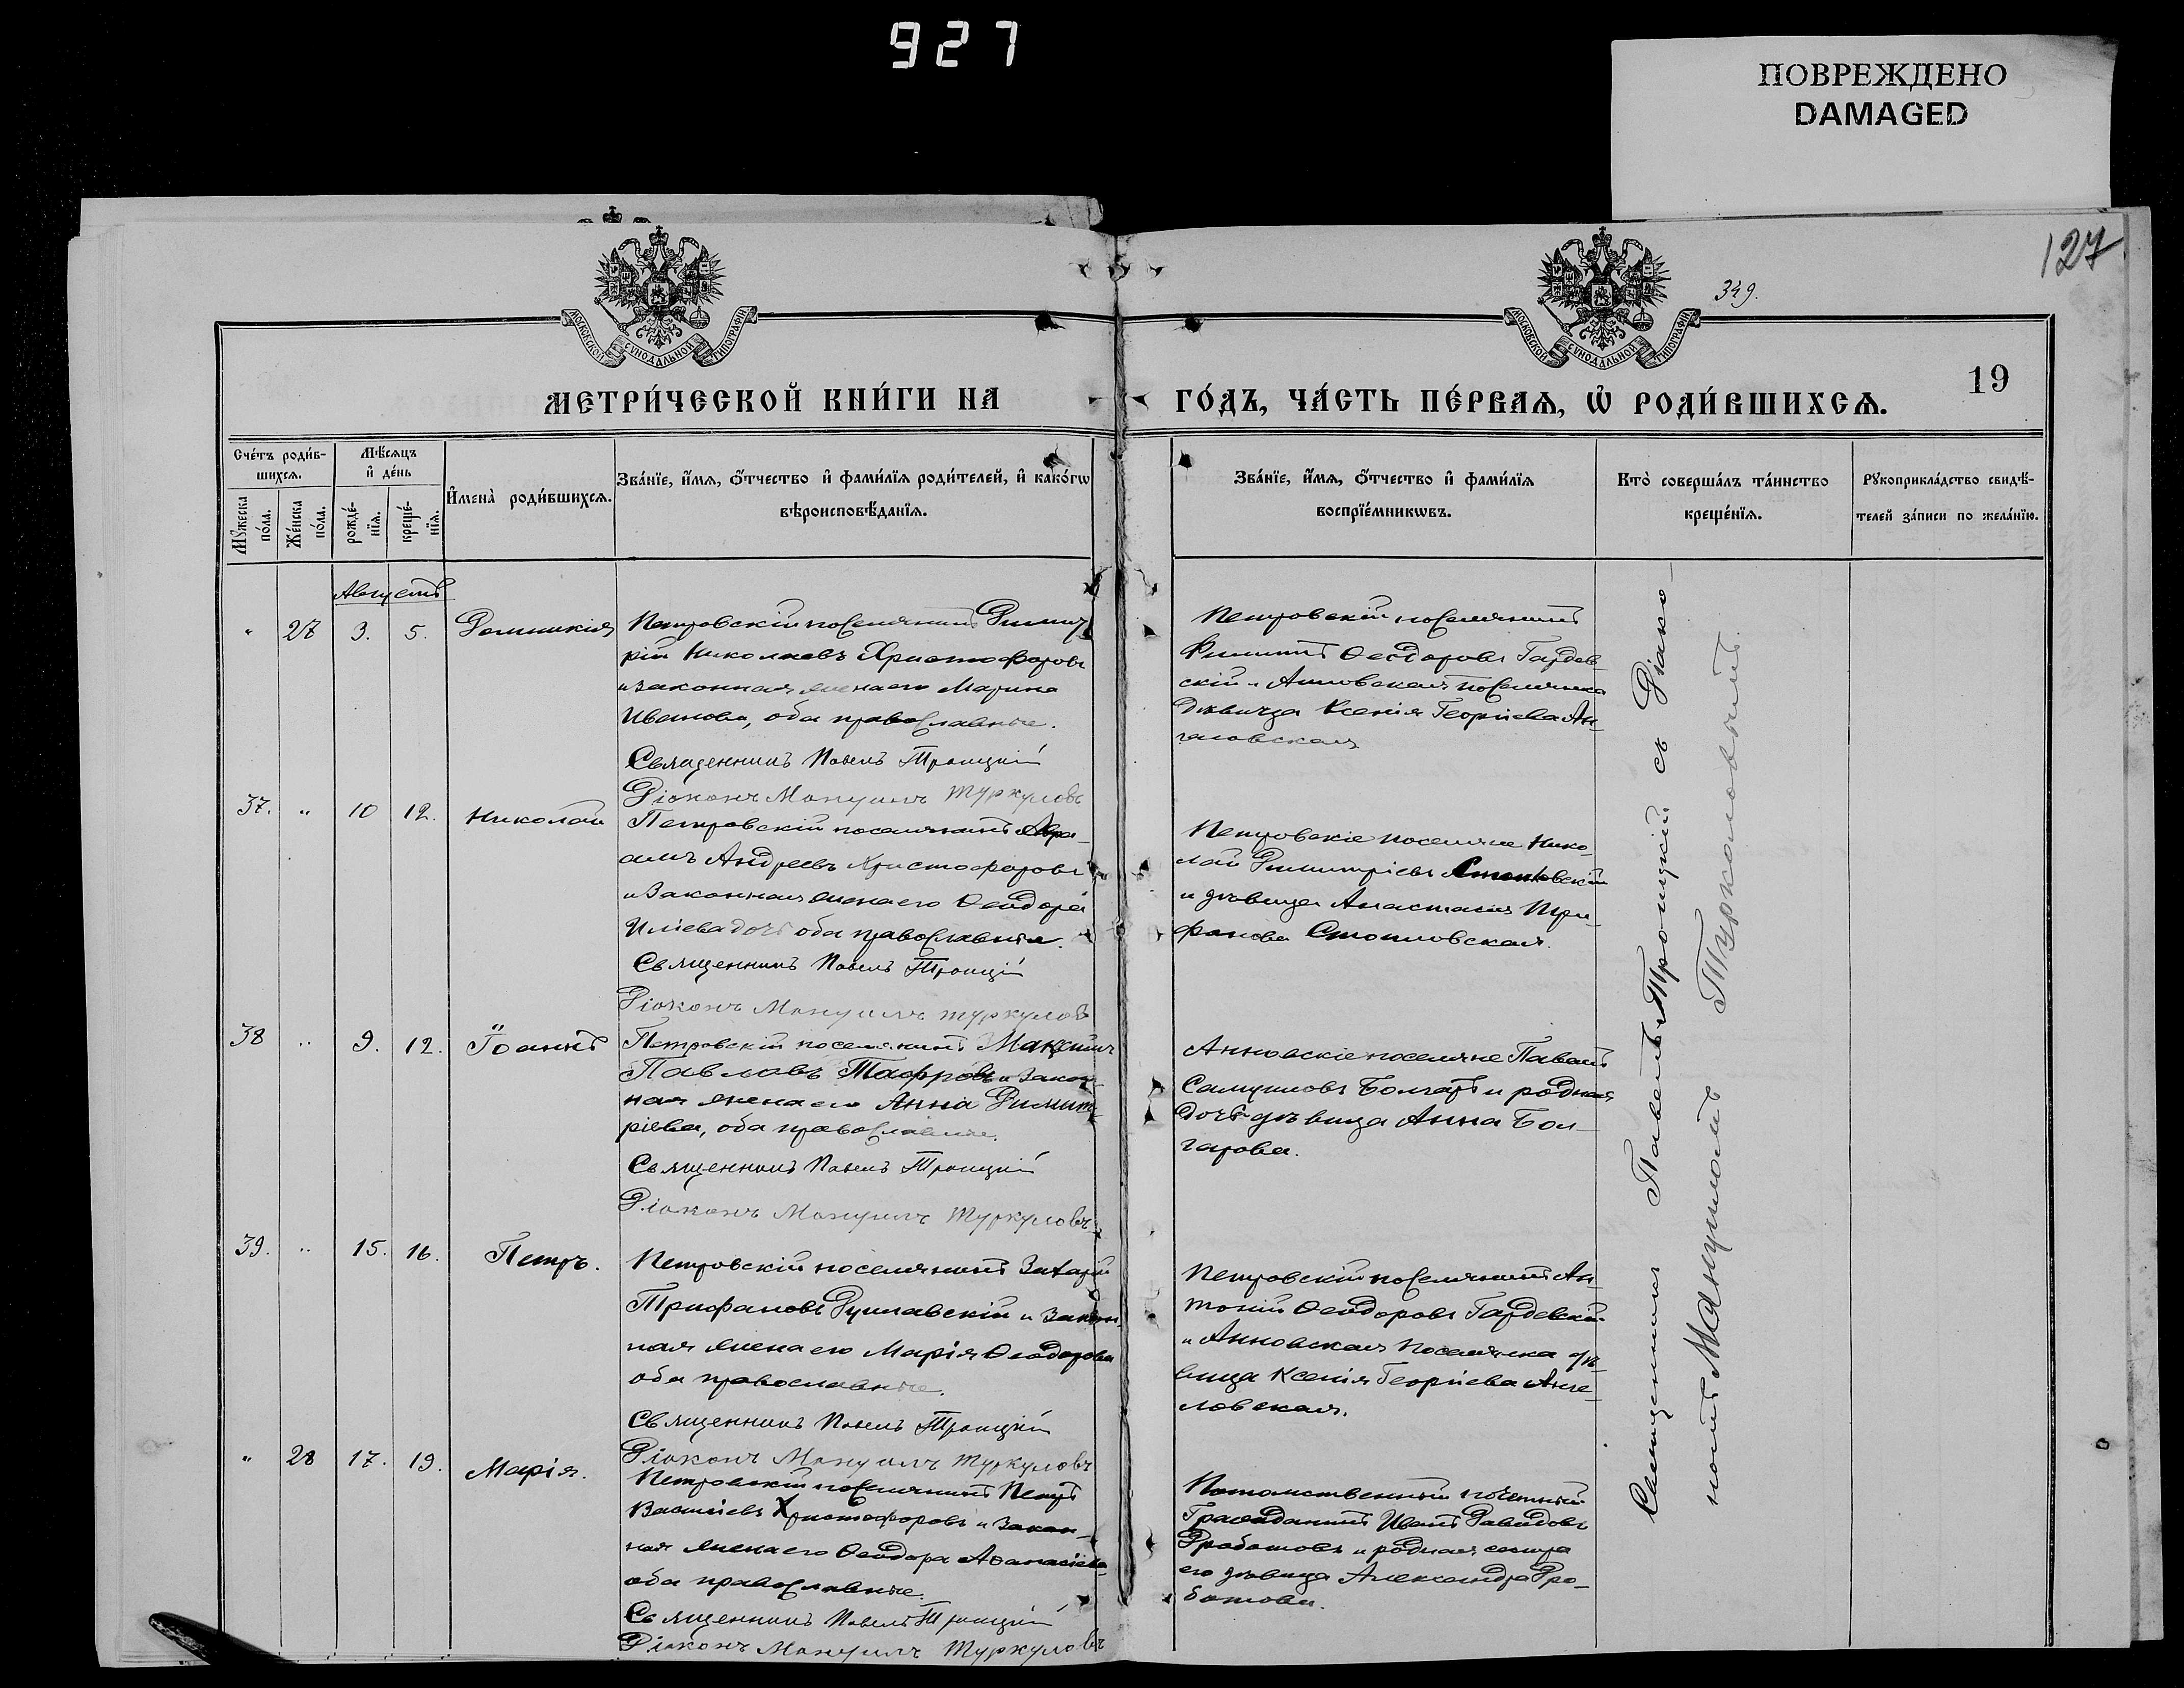 927
ПОВРЕЖДЕНО
DAMAGED
127
349.
МОСКОВСКОЙ СѴНОДАЛЬНОЙ ТИПОГРАФІИ
МОСКОВСКОЙ СѴНОДАЛЬНОЙ ТИПОГРАФІИ
МЕТРИ́ЧЕСКОЙ КНИ́ГИ НА
ГО́ДЪ, ЧА́СТЬ ПЕ́РВАѦ, Ѡ҆ РОДИ́ВШИХСѦ.
19
Сче́тъ роди́в-
шихсѧ.
Мꙋ́жеска по́ла.
Же́нска по́ла.
Мѣ́сѧцъ
и҆ де́нь
рожде́-
нїѧ.
креще́-
нїѧ.
И҆мена̀ роди́вшихсѧ.
Зва́нїе, и҆́мѧ, ѻ҆́тчество и҆ фами́лїѧ роди́телей, и҆ како́гѡ
вѣроисповѣ́данїѧ.
Зва́нїе, и҆́мѧ, ѻ҆́тчество и҆ фами́лїѧ
воспрїе́мникѡвъ.
Кто̀ соверша́лъ та́инство
креще́нїѧ.
Рꙋкоприкла́дство свидѣ́-
телей за́писи по жела́нїю.
Августъ
" 27 3. 5. Домникія
Петровскій поселянинъ Димит
рій Николаевъ Христофоровъ
и законная жена его Марина
Иванова, оба православные.
Священникъ Павелъ Троицкій
Діаконъ Мануилъ Туркуловъ
Петровскій поселянинъ
Филиппъ Ѳеодоровъ Гардев
скій и Анновская поселянка
дѣвица Ксенія Георгіева Ан-
геловская
37. " 10 12. Николай
Петровскій поселянинъ Авра-
амъ Андреевъ Христофоровъ
и законная жена его Ѳеодора
Иліева дочь оба православные.
Священникъ Павелъ Троицкій
Діаконъ Мануилъ Туркуловъ
Петровскіе поселяне Нико-
лай Димитріевъ Стоиловскій
и дѣвица Анастасія Три-
фонова Стоиловская.
38 " 9. 12. Іоаннъ
Петровскій поселянинъ Максимъ
Павловъ и закон-
ная жена его Анна Димит-
ріева, оба православные.
Священникъ Павелъ Троицкій
Діаконъ Мануилъ Туркуловъ
Анновскіе поселяне Павелъ
Самуиловъ Болгаръ и родная
дочь дѣвица Анна Бол-
гарова.
39. " 15. 16. Петръ.
Петровскій поселянинъ Захарій
Трифановъ и закон-
ная жена его Марія Ѳеодорова
оба православные.
Священникъ Павелъ Троицкій
Діаконъ Мануилъ Туркуловъ
Петровскій поселянинъ Ан-
тоній Ѳеодоровъ Гардевскій
и Анновская поселянка дѣ-
вица Ксенія Георгіева Анге-
ловская.
" 28 17. 19. Марія.
Петровскій поселянинъ Петръ
Василіевъ Христофоровъ и закон-
ная жена его Ѳеодора Аѳанасіева
оба православные.
Священникъ Павелъ Троицкій
Діаконъ Мануилъ Туркуловъ
Потомственный почетный
Гражданинъ Иванъ Давидовъ
и родная сестра
его дѣвица Александра
Священникъ Павелъ Троицкій съ Діако-
номъ Мануиломъ